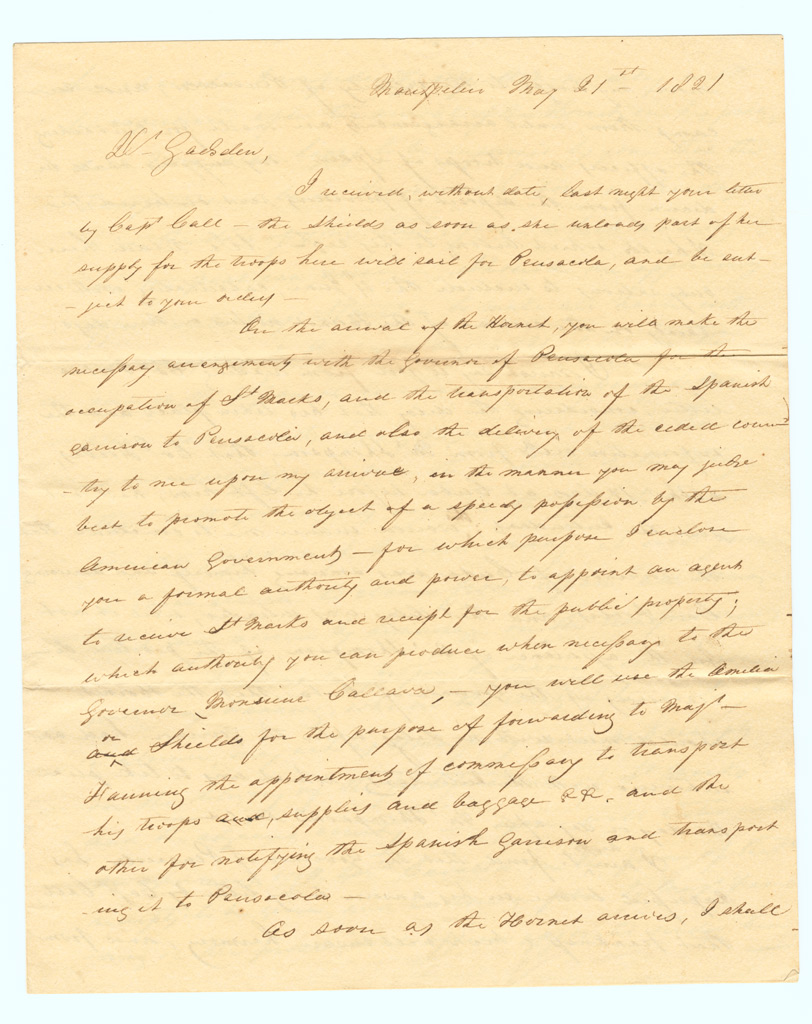 Montpelier May 21st 1821
Dr Gadsden,
I received, without date, last night your letter
by Capt Call — the Shields as soon as she unloads part of her
supply for the troops here will sail for Pensacola, and be sub-
-ject to your orders —
On the arival of the Hornet, you will make the
necessary arrangements with the Governor of Pensacola for the
occupation of St Marks, and the transportation of the Spanish
garrison to Pensacola, and also the delivery of the ceded coun-
-try to me upon my arival, in the manner you may judge
best to promote the object of a speedy possession by the
American Government — for which purpose I enclose
you a formal authority and power, to appoint an agent
to receive St Marks and receipt for the public property;
which authority you can produce when necessary to the
Governor Monsieur Callava, — you will use the Amelia
or
and Shields for the purpose of forwarding to Majr —
Fanning the appointment of commissary to transport
his troops and, supplies and baggage &c. and the
other for notifying the Spanish Garrison and transport
ing it to Pensacola —
As soon as the Hornet arives, I shall